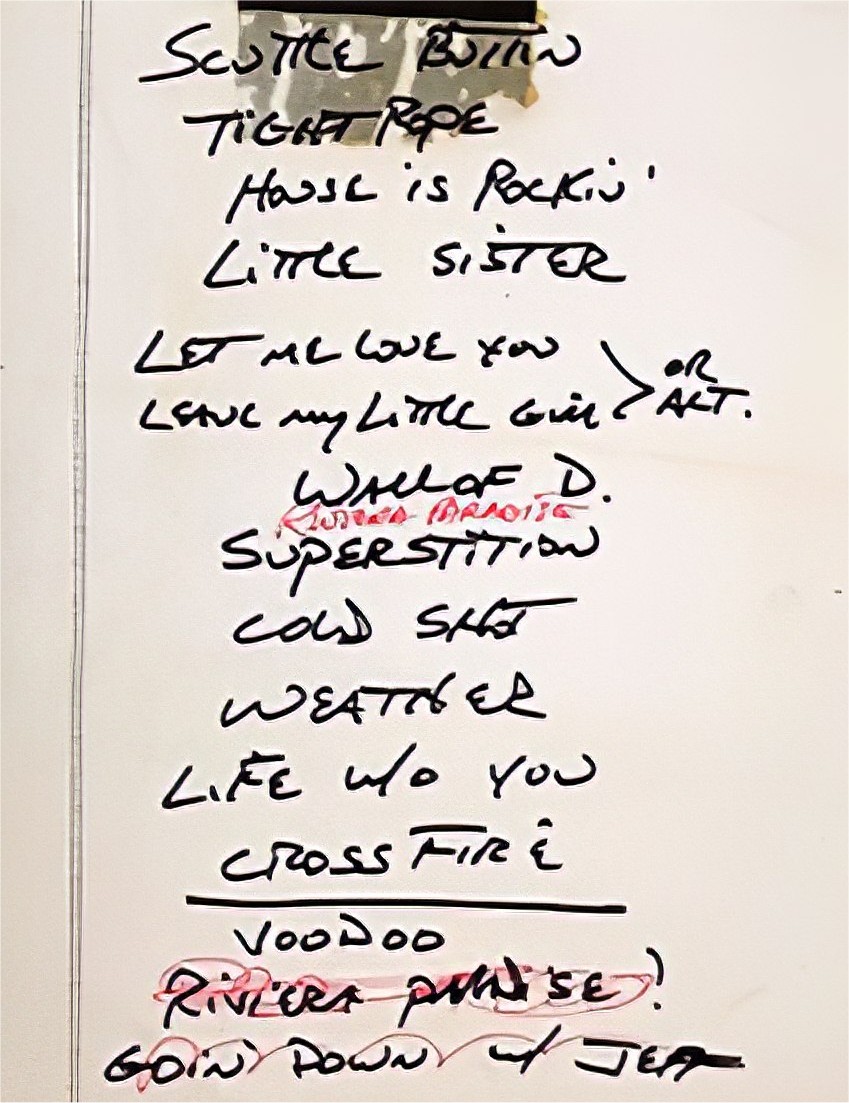 SCUTTLE BUTTIN
TIGHTROPE
HOUSE iS ROCKiN'
LiTTLE SiSTER
LET ME LOVE YOU
OR
LEAVE my LiTTLE GiRL
ALT.
WALL OF D.
RIVIERA PARADISE
SUPERSTiTiON
COLD SHOT
WEATHER
LiFE w/o YOU
CROSSFiRE
VOODOO
RiViERA PARADiSE!
GOiN' DOWN w/ JEFF